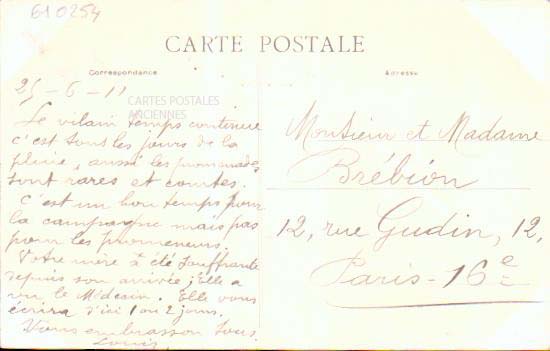 610254
CARTE POSTALE
Correspondance
Adresse
CARTES POSTALES
ANCIENNES
25-6-11
Le vilain temps continue
c'est tous les jours de la
pluie, aussi les promenades
sont rares et courtes.
C'est un bon temps pour
la campagne mais pas
pour les promeneurs.
Votre mère a été souffrante
depuis son arrivée; Elle a
vu le Médecin. Elle vous
écrira d'ici 1 ou 2 jours.
Vous embrassons tous
Louis
Monsieur et Madame
Brébion
12, rue Gudin, 12,
Paris-16e